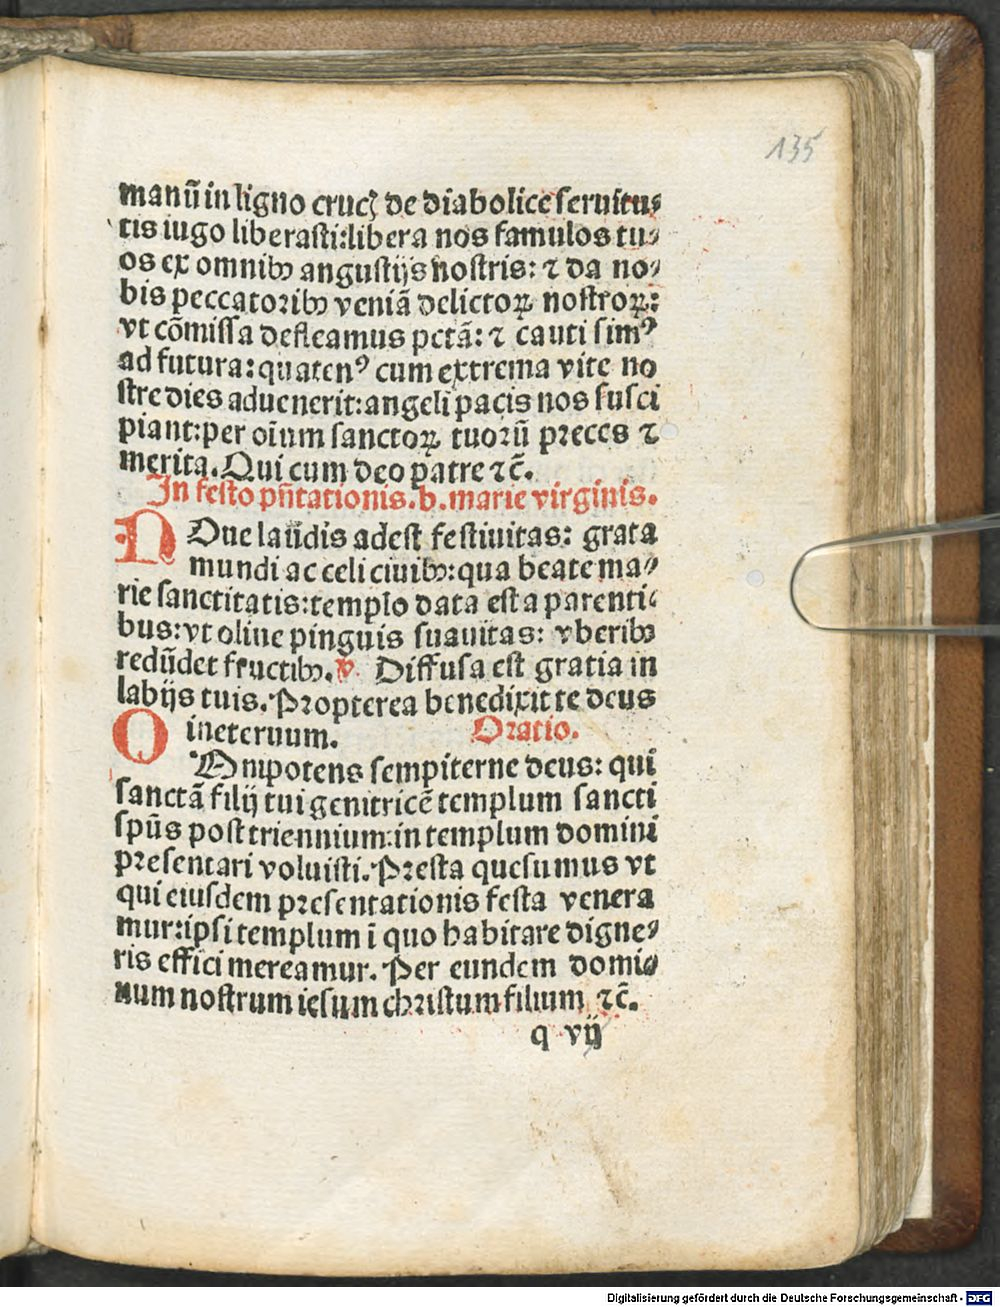 135
manū in ligno crucꝫ de diabolice seruitu⸗
tis iugo liberasti:libera nos famulos tu⸗
os ex omnibꝫ angustijs nostris: ⁊ da no⸗
bis peccatoribꝫ veniā delictoꝝ nostroꝝ:
vt cōmissa defleamus pctā: ⁊ cauti simꝰ
ad futura:quatenꝰ cum extrema vite no
stre dies aduenerit:angeli pacis nos susci
piant:per oīum sanctoꝝ tuorū preces ⁊
merita. Qui cum deo patre ⁊c̄.
In festo pn̄tationis.b.marie virginis.
NOue laudis adest festiuitas: grata
mundi ac celi ciuibꝫ:qua beate ma⸗
rie sanctitatis:templo data est a parenti⸗
bus:vt oliue pinguis suauitas: vberibꝫ
redūdet fructibꝫ. ℣. Diffusa est gratia in
labijs tuis. Propterea benedixit te deus
in eternum. Oratio.
OMnipotens sempiterne deus: qui
sanctā filij tui genitricē templum sancti
spūs post triennium:in templum domini
presentari voluisti. Presta quesumus vt
qui eiusdem presentationis festa venera
mur:ipsi templum ī quo habitare digne⸗
ris effici mereamur. Per eundem domi⸗
num nostrum iesum christum filium ⁊c̄.
q vij
Digitalisierung gefördert durch die Deutsche Forschungsgemeinschaft - DFG